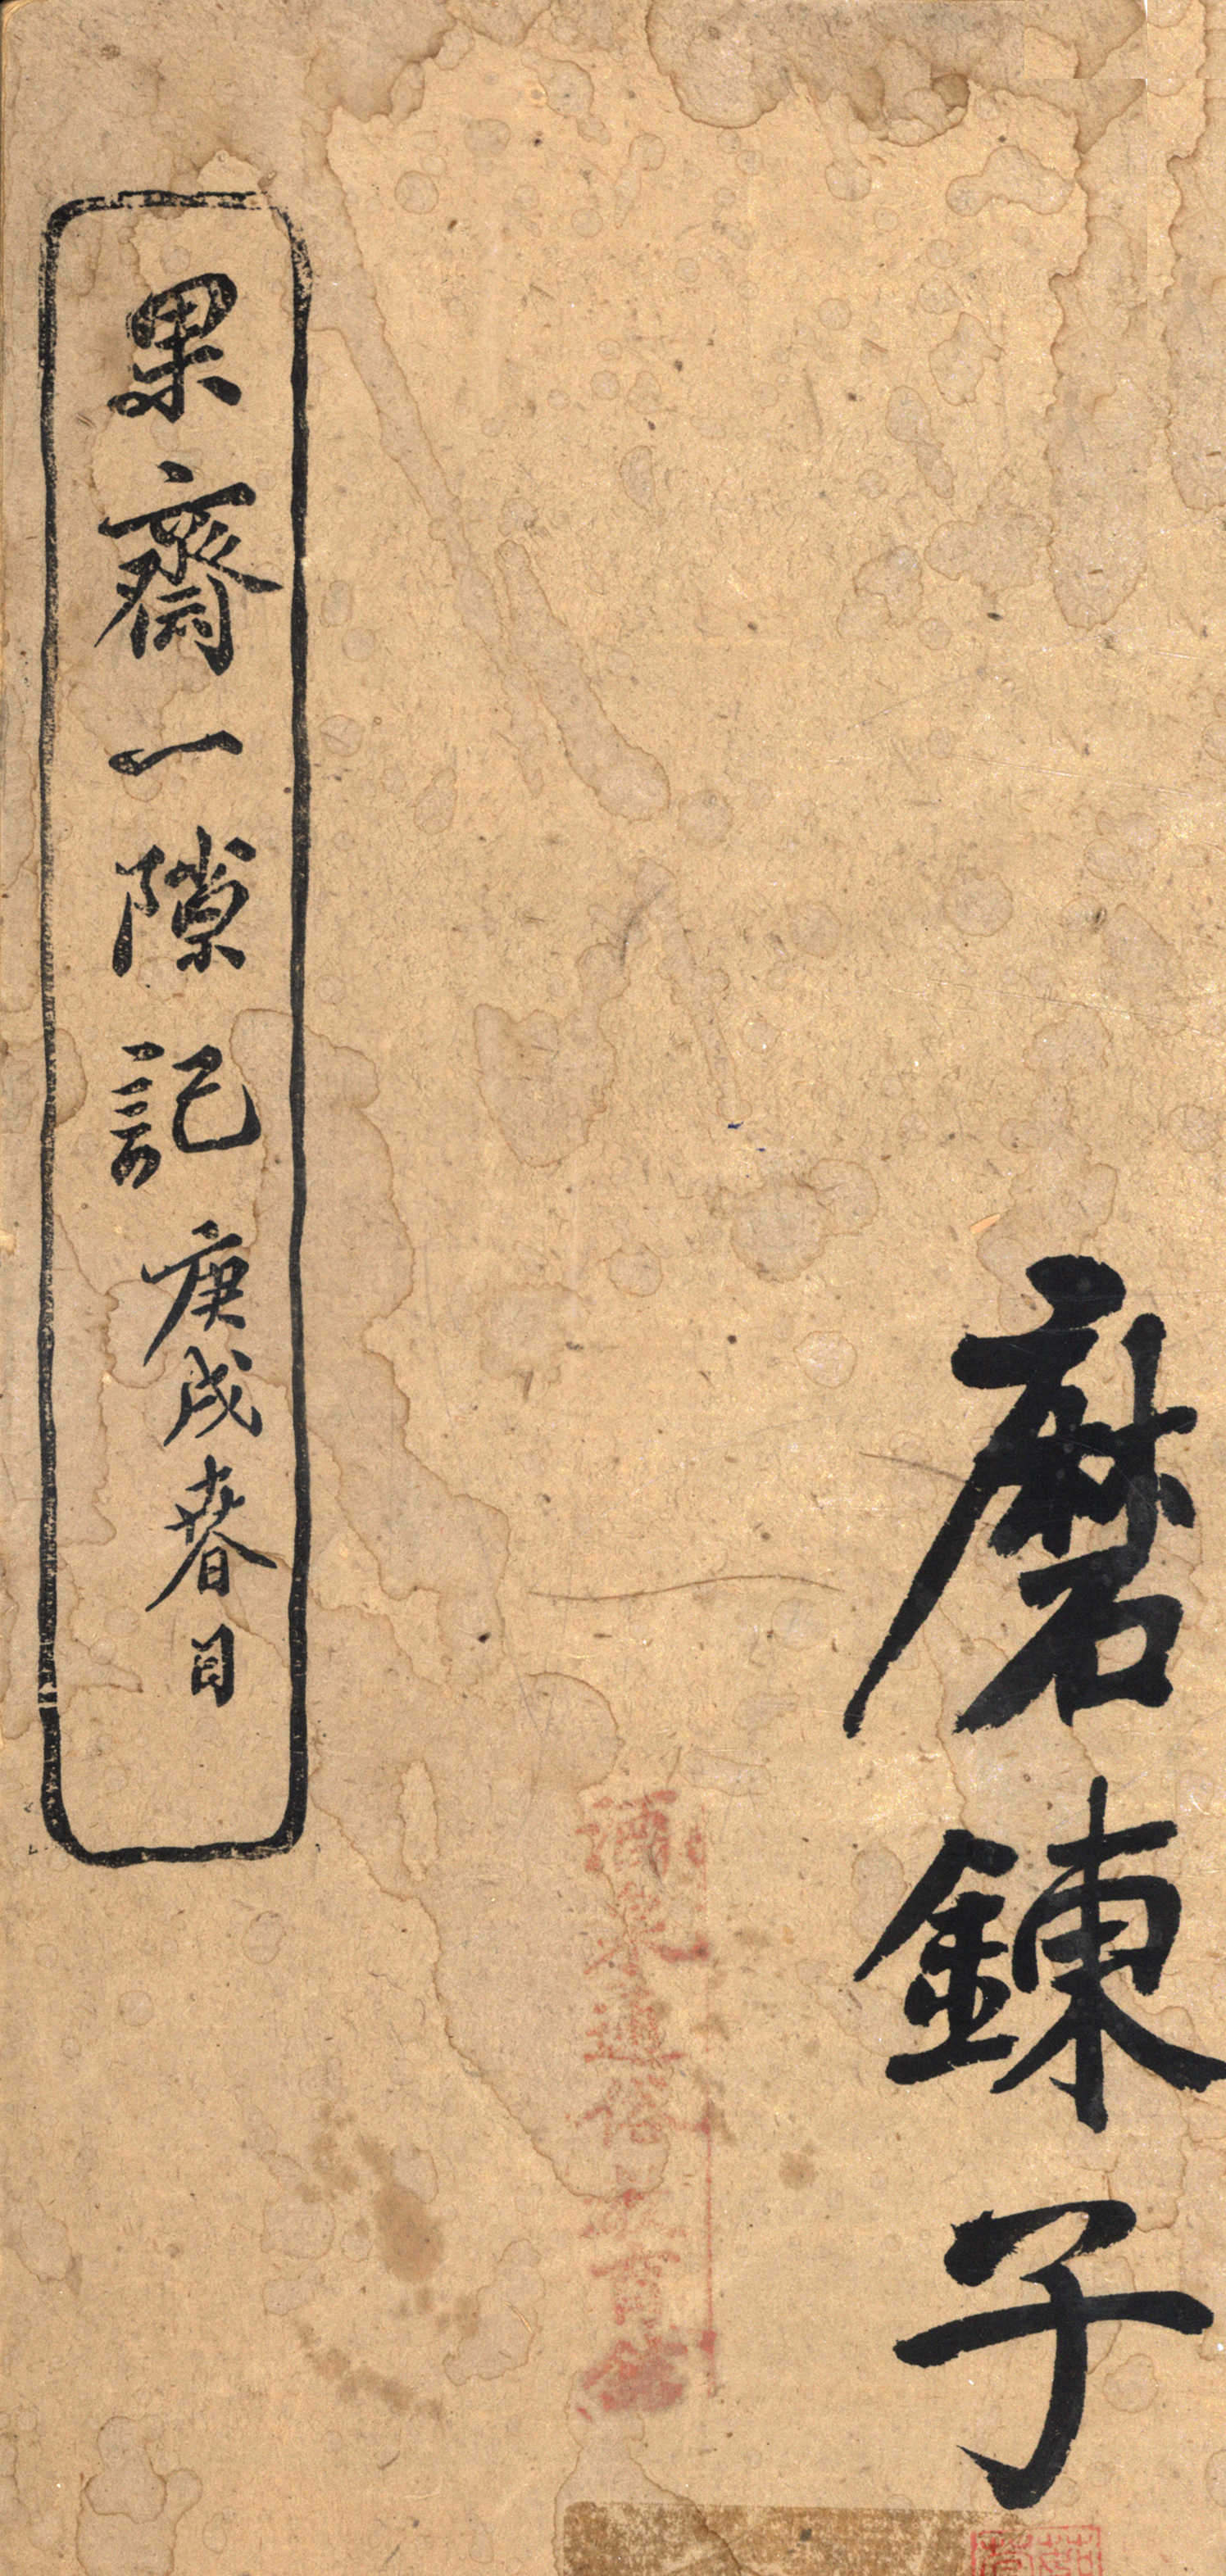 磨鍊子
果齋一隙記 庚戌春日